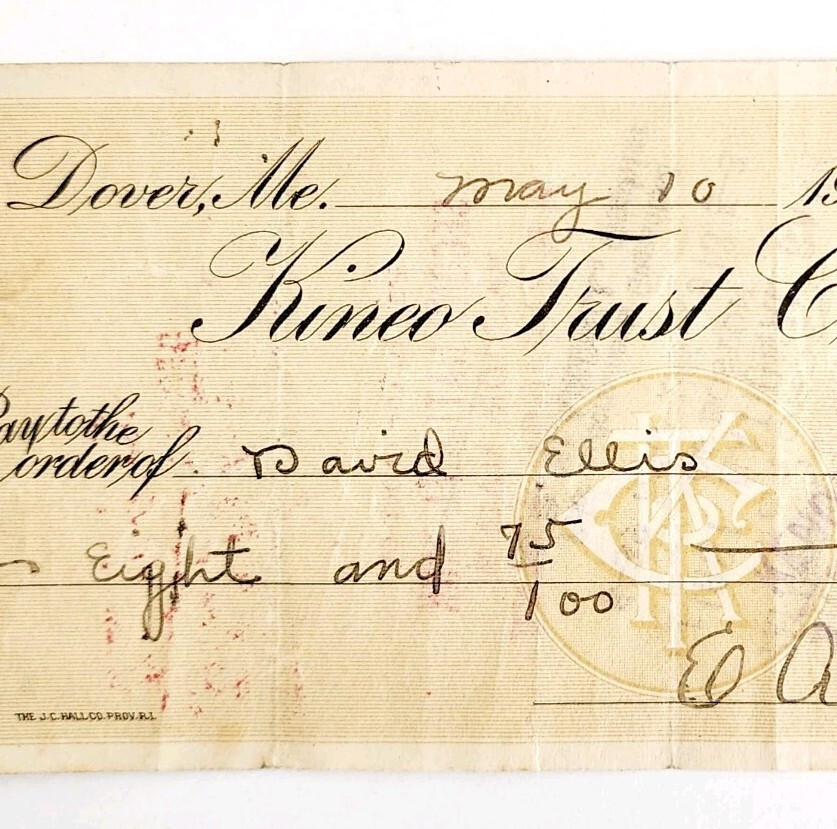 Dover, Me. May 10 19
Kineo Trust C
Pay to the
order of David Ellis
Eight and 75/100
E A
THE J.C. HALL CO. PROV. R.I.